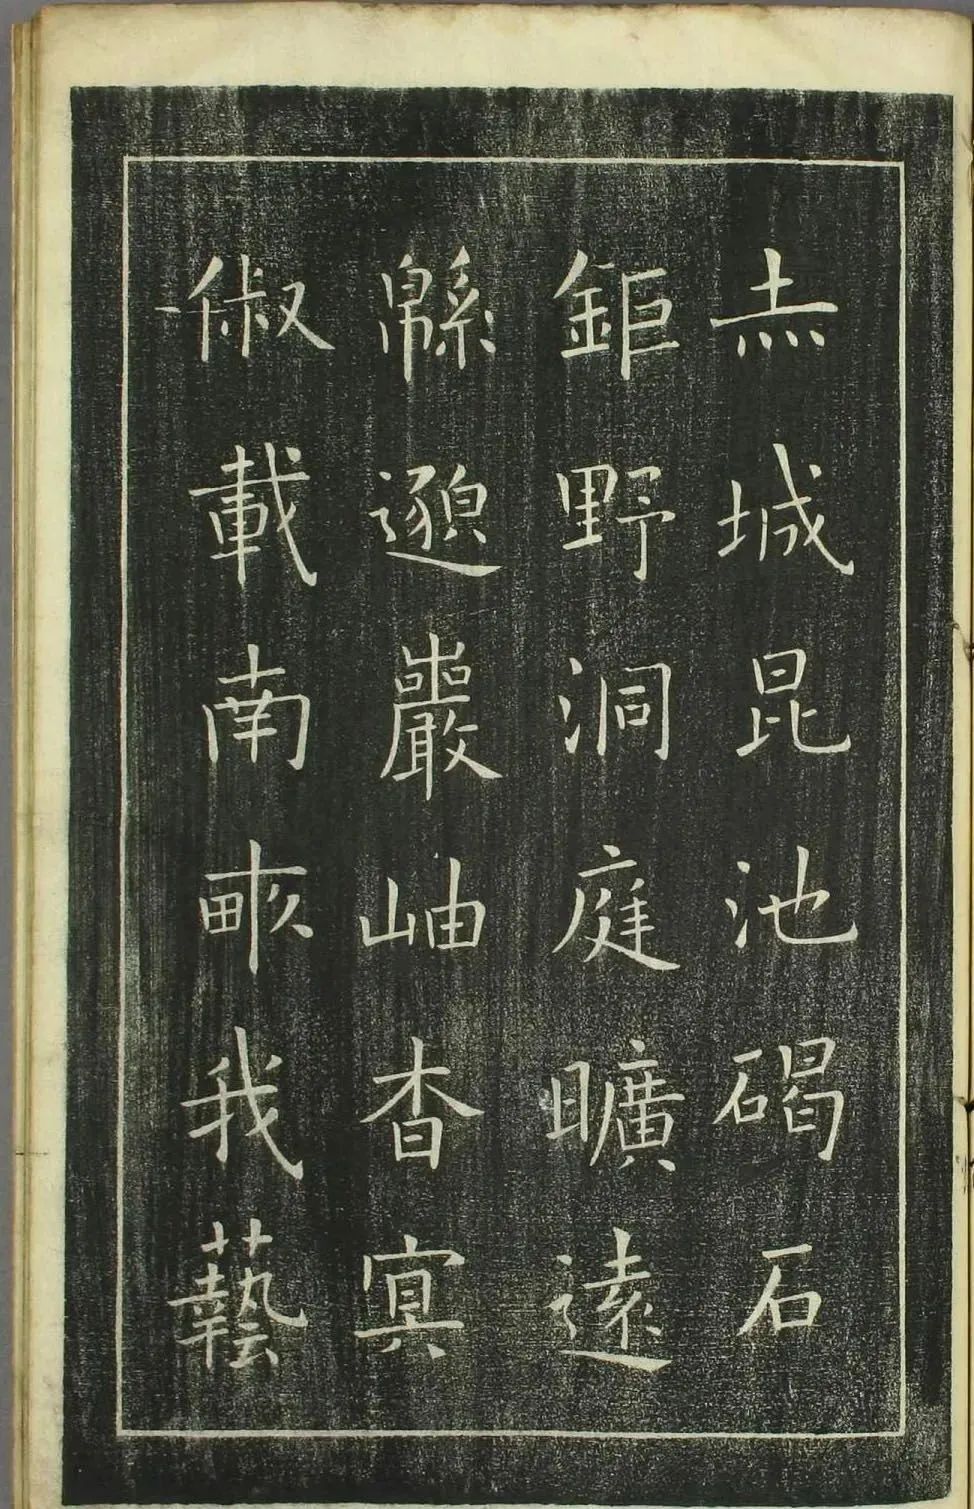 赤城昆池碣石
鉅野洞庭曠遠
緜邈巖岫杳冥
俶載南畝我藝